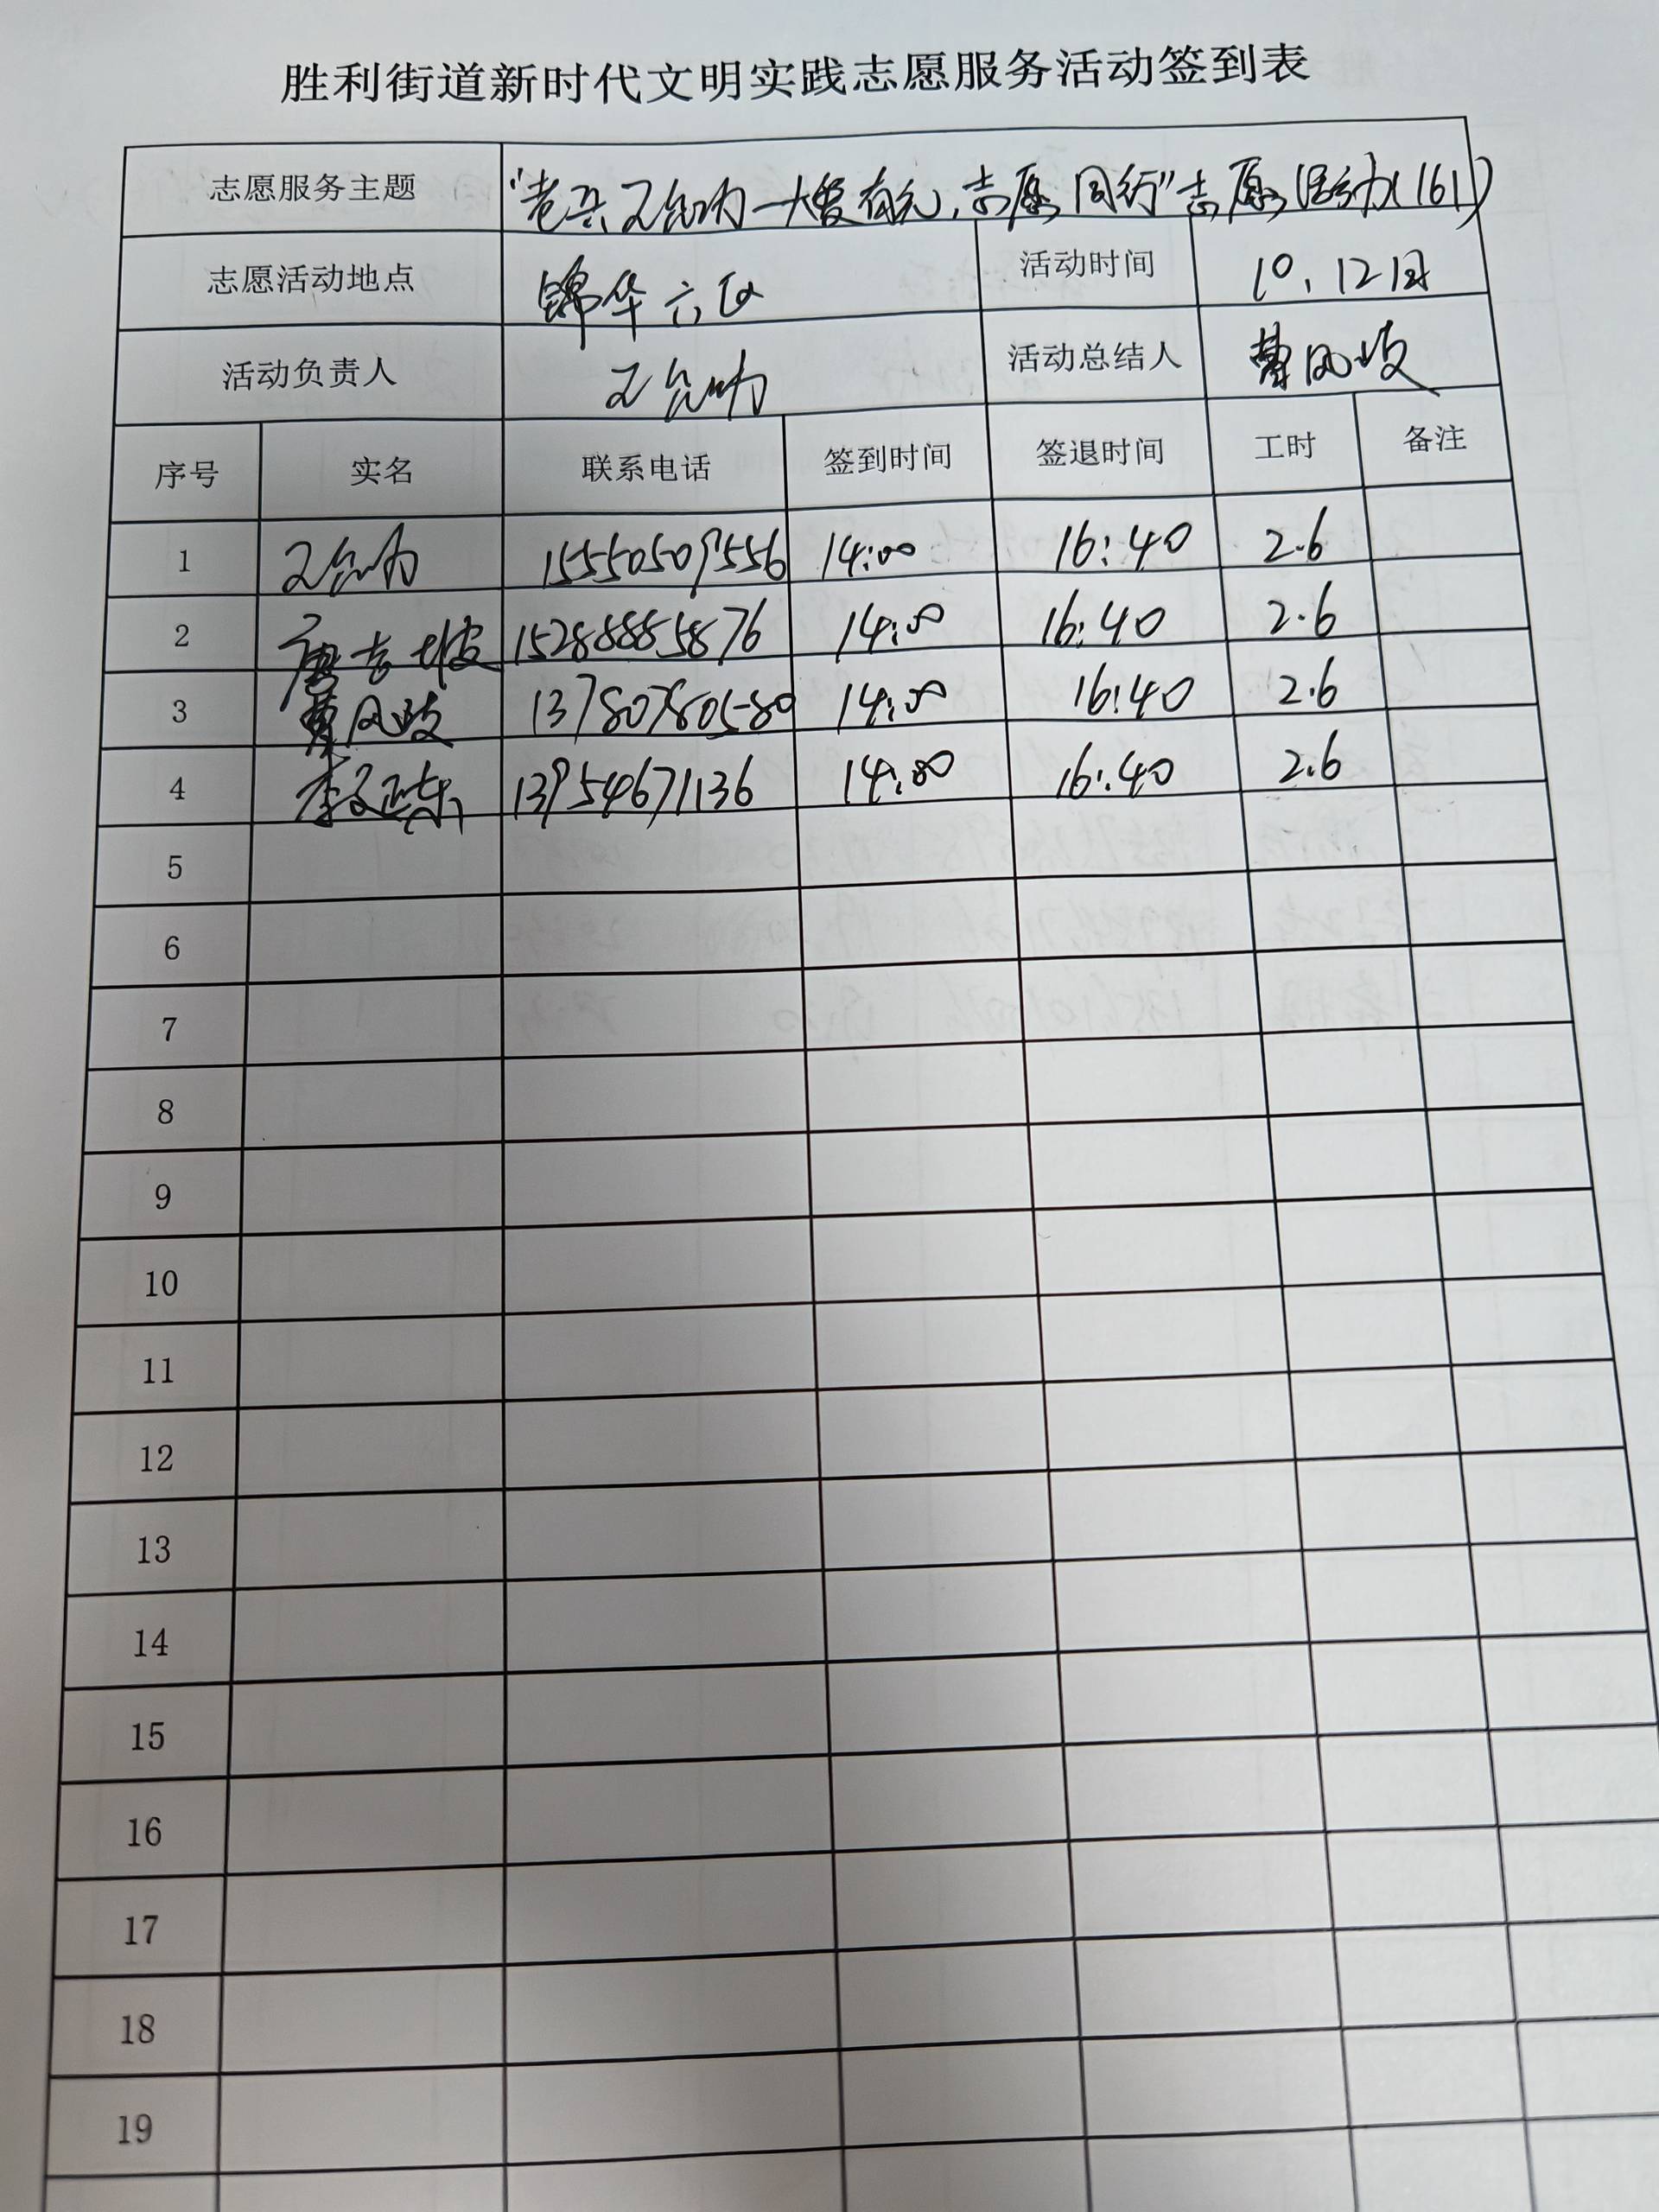 胜利街道新时代文明实践志愿服务活动签到表
志愿服务主题 "老兵 志愿同行"志愿活动(161)
志愿活动地点 锦华六区 活动时间 10.12日
活动负责人 活动总结人 曹凤岐
序号 实名 联系电话 签到时间 签退时间 工时 备注
1 15550509556 14:00 16:40 2.6
2 唐吉坡 15288885876 14:00 16:40 2.6
3 曹凤岐 13780780580 14:00 16:40 2.6
4 李文正东 13954671136 14:00 16:40 2.6
5
6
7
8
9
10
11
12
13
14
15
16
17
18
19